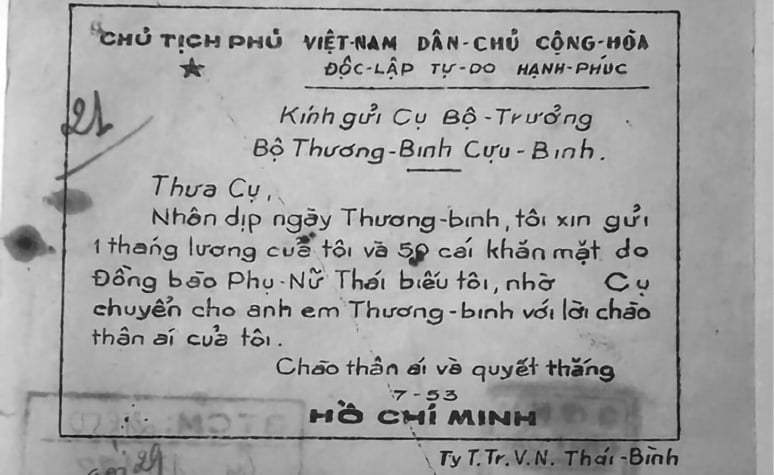 CHỦ TỊCH PHỦ VIỆT-NAM DÂN-CHỦ CỘNG-HÒA
ĐỘC-LẬP TỰ-DO HẠNH-PHÚC
21
Kính gửi Cụ Bộ-Trưởng
Bộ Thương-Binh Cựu-Binh.
Thưa Cụ,
Nhân dịp ngày Thương-binh, tôi xin gửi
1 tháng lương của tôi và 50 cái khăn mặt do
Đồng bào Phụ-Nữ Thái biếu tôi, nhờ Cụ
chuyển cho anh em Thương-binh với lời chào
thân ái của tôi.
Chào thân ái và quyết thắng
7-53
HỒ CHÍ MINH
BTCM:
29
Ty T.Tr.V.N. Thái-Bình